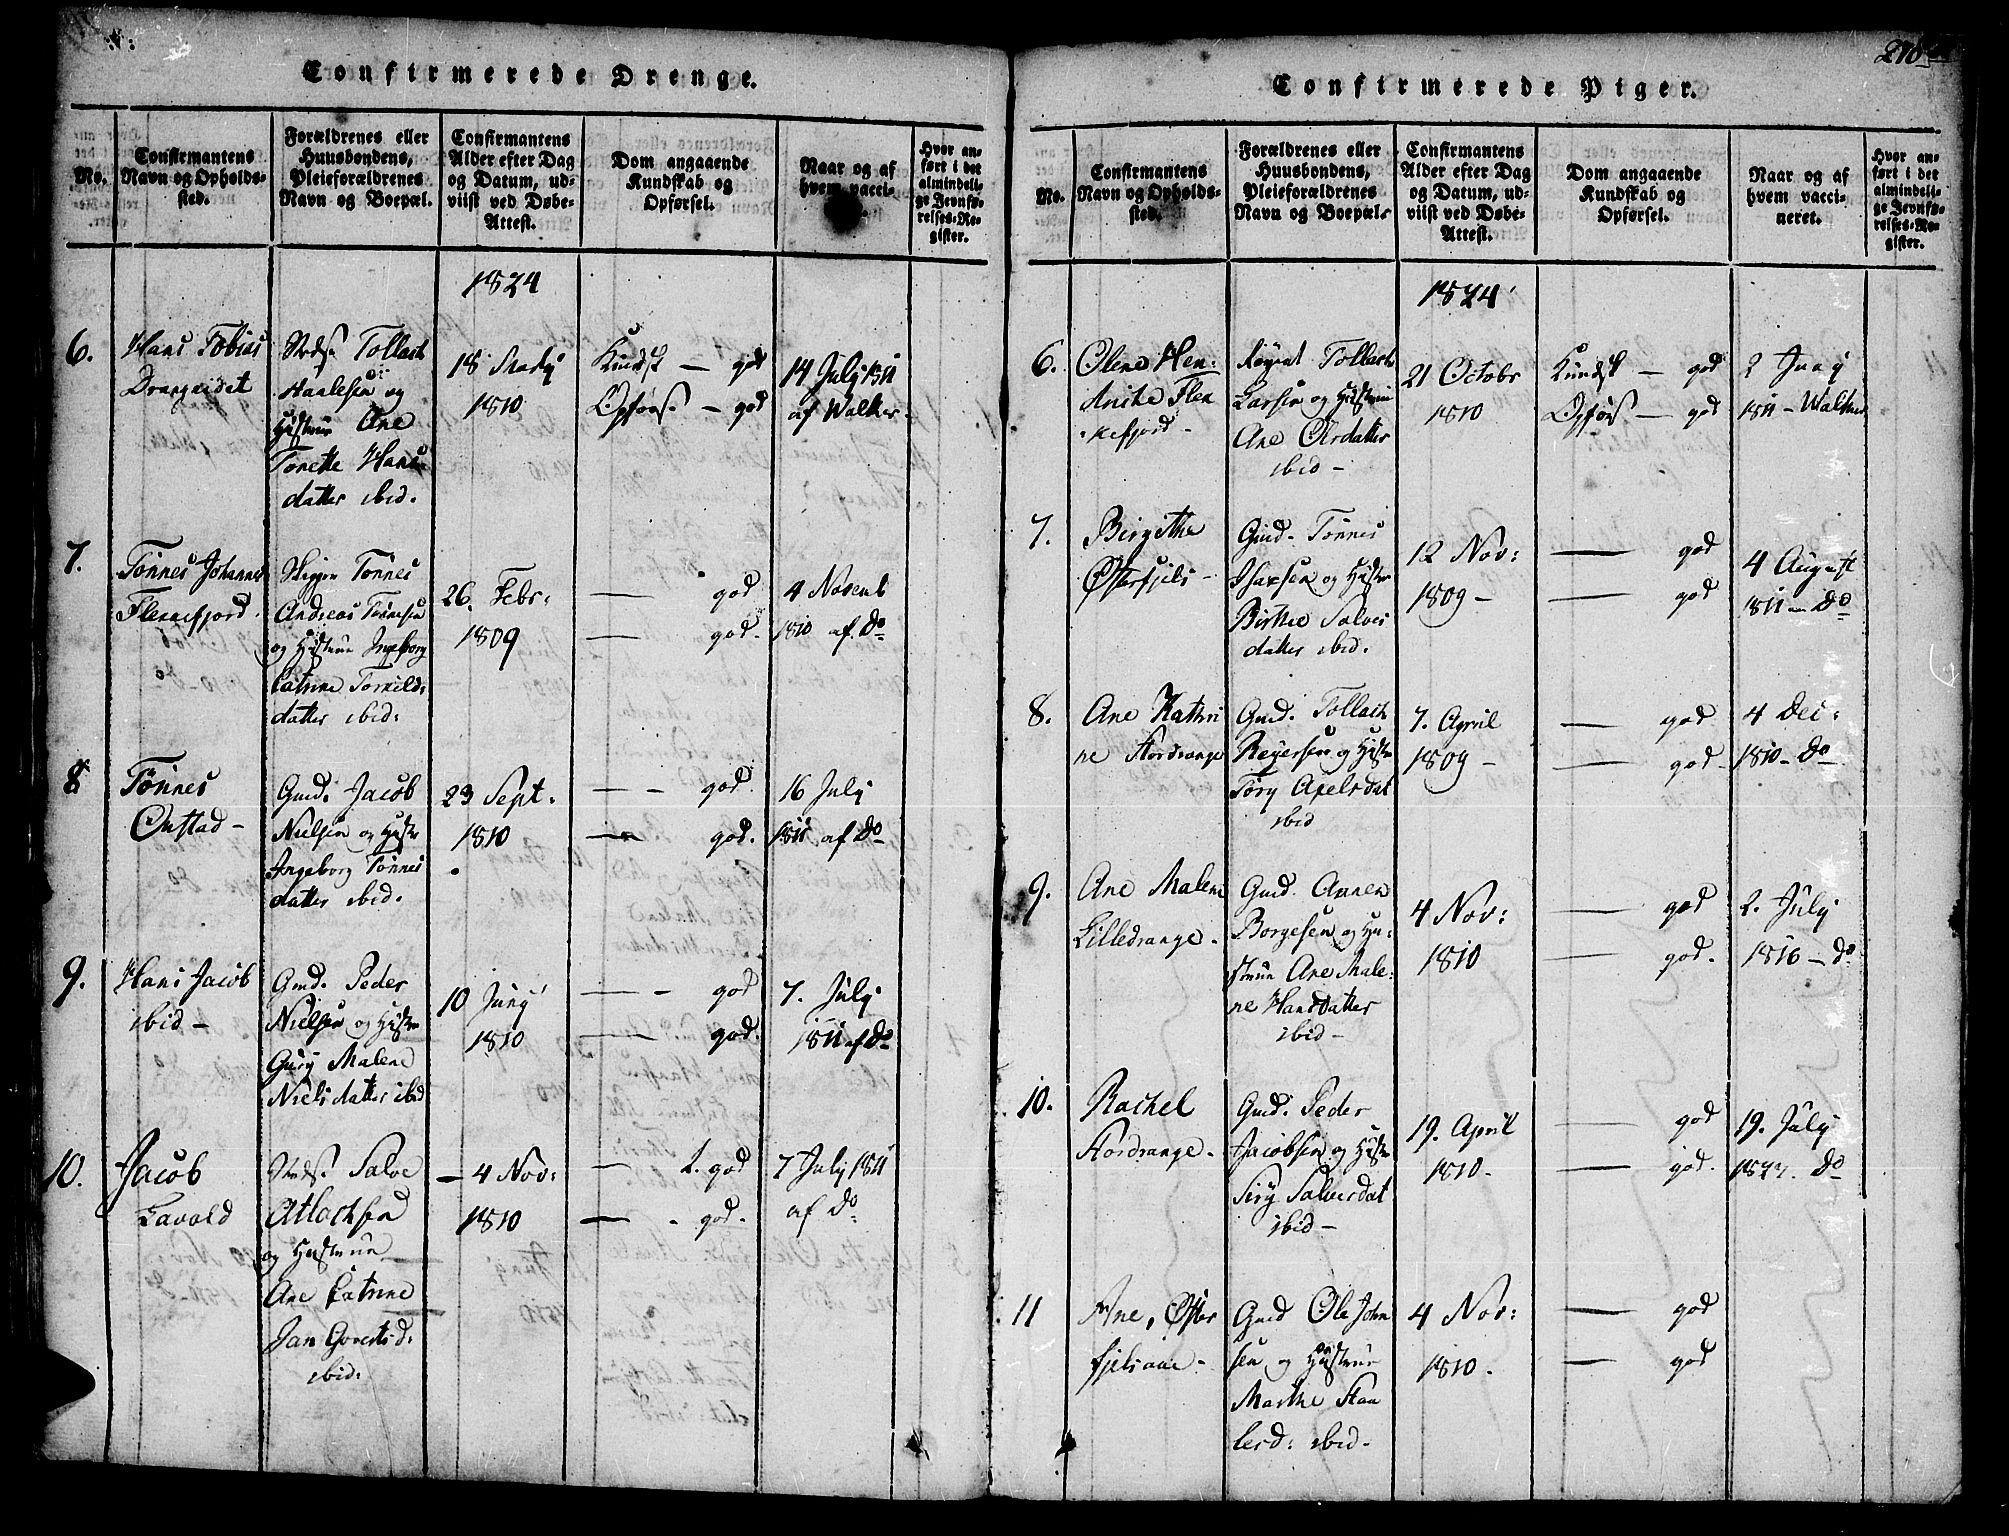 Confirmerede Drenge.
No.
Confirmantens
Navn og Opholds-
sted.
Forældrenes eller
Huusbondens,
Pleieforældrenes
Navn og Boepæl.
Confirmantens
Alder efter Dag
og Datum, ud-
viist ved Døbe-
Attest.
Dom angaaende
Kundskab og
Opførsel.
Naar og af
hvem vacci-
Hvor an-
ført i det
almindeli-
ge Jevnfø-
relses-Re-
gister.
1824
6.
Hans Tobias
Drangeidet
Tollach
Haalesen og
Hustrue Ane
Tonette Hans
datter ibid.
18
1810
Kundsk — god
Opførs — god
14 July 1811
af Walker
7.
Tønnes Johannes
Flekkefjord.
Tønnes
Andreas Tønnesen
og Hustrue Ingeborg
Catrine Torkilds
datter ibid:
26. Febr:
1809
— god
— god.
4 Novemb
1810 af Do
8
Tønnes
Onstad –
Gmd. Jacob
Nielsen og Hustr
Ingeborg Tønnes
datter ibid.
23 Sept.
1810
— god.
— god.
16 July
1811 af Do
9.
Hans Jacob
ibid –
Gmd. Peder
Nielsen og Hustr
Gury Malene
Nielsdatter ibid
10 Juny
1810
— god
— god.
7. July
1811 af Do
10.
Jacob
Lavold
Salve
Atlachsen
og Hustrue
Ane Catrine
Jan Govertsd:
ibid.
– 4 Nov:
1810
— god
— god.
7 July 1811
af Do
Confirmerede Piger.
No.
Confirmantens
Navn og Opholds-
sted.
Forældrenes eller
Huusbondens,
Pleieforældrenes
Navn og Boepæl.
Confirmantens
Alder efter Dag
og Datum, ud-
viist ved Døbe-
Attest.
Dom angaaende
Kundskab og
Opførsel.
Naar og af
hvem vacci-
neret.
Hvor an-
ført i det
almindeli-
ge Jevnfø-
relses-Re-
gister.
1824
6.
Olene Hen:
Anike Flek
kefjord –
Tollach
Larsen og Hustrue
Ane
ibid –
21 Octobr
1810
Kundsk — god
Opførs — god
2 Juny
1811 – Walker
7.
Birgithe
Østerfjels –
Gmd. Tønnes
Isaxsen og Hustr
Birthe Salves
datter ibid.
12 Nov:
1809 –
— god
— god
4 August
1811 – Do
8.
Ane Kathri
ne Stordrange
Gmd. Tollach
Reyersen og Hustr
Tory Axelsdat
ibid
7. April
1809 –
— god
— god –
4 Dec:
1810 – Do
9.
Ane Malene
Lilledrange –
Gmd.
Borgesen og Hu:
strue Ane Male:
ne Hansdatter
ibid –
4 Nov:
1810
— god
— god.
2. July
1816 – Do
10.
Rachel
Stordrange –
Gmd. Peder
Jacobsen og Hustr
Siry Salvesdat
ibid –
19. April
1810 –
— god
— god.
19. July
Do
11
Ane, Øster
fjelsaae –
Gmd Ole John
sen og Hustrue
Marthe Staa
lesd: ibid –
4 Nov:
1810 –
— god
— god